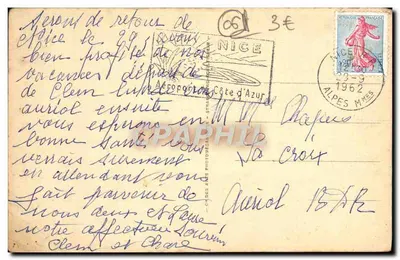 Serons de retour de
Nice le 29 avons
bien profité de nos
vacances départ de
de Clem lundi irons
auriol ensuite
vous espérons en
bonne Santé vous
verrais surement
en attendant vous
fait parvenir de
nous deux et
notre affectueux Souvenir
Clem et
06
3€
NICE
Aéroport Côte d'Azur
NICE
1962
ALPES Mmes
M M
La Croix
Auriol B D R